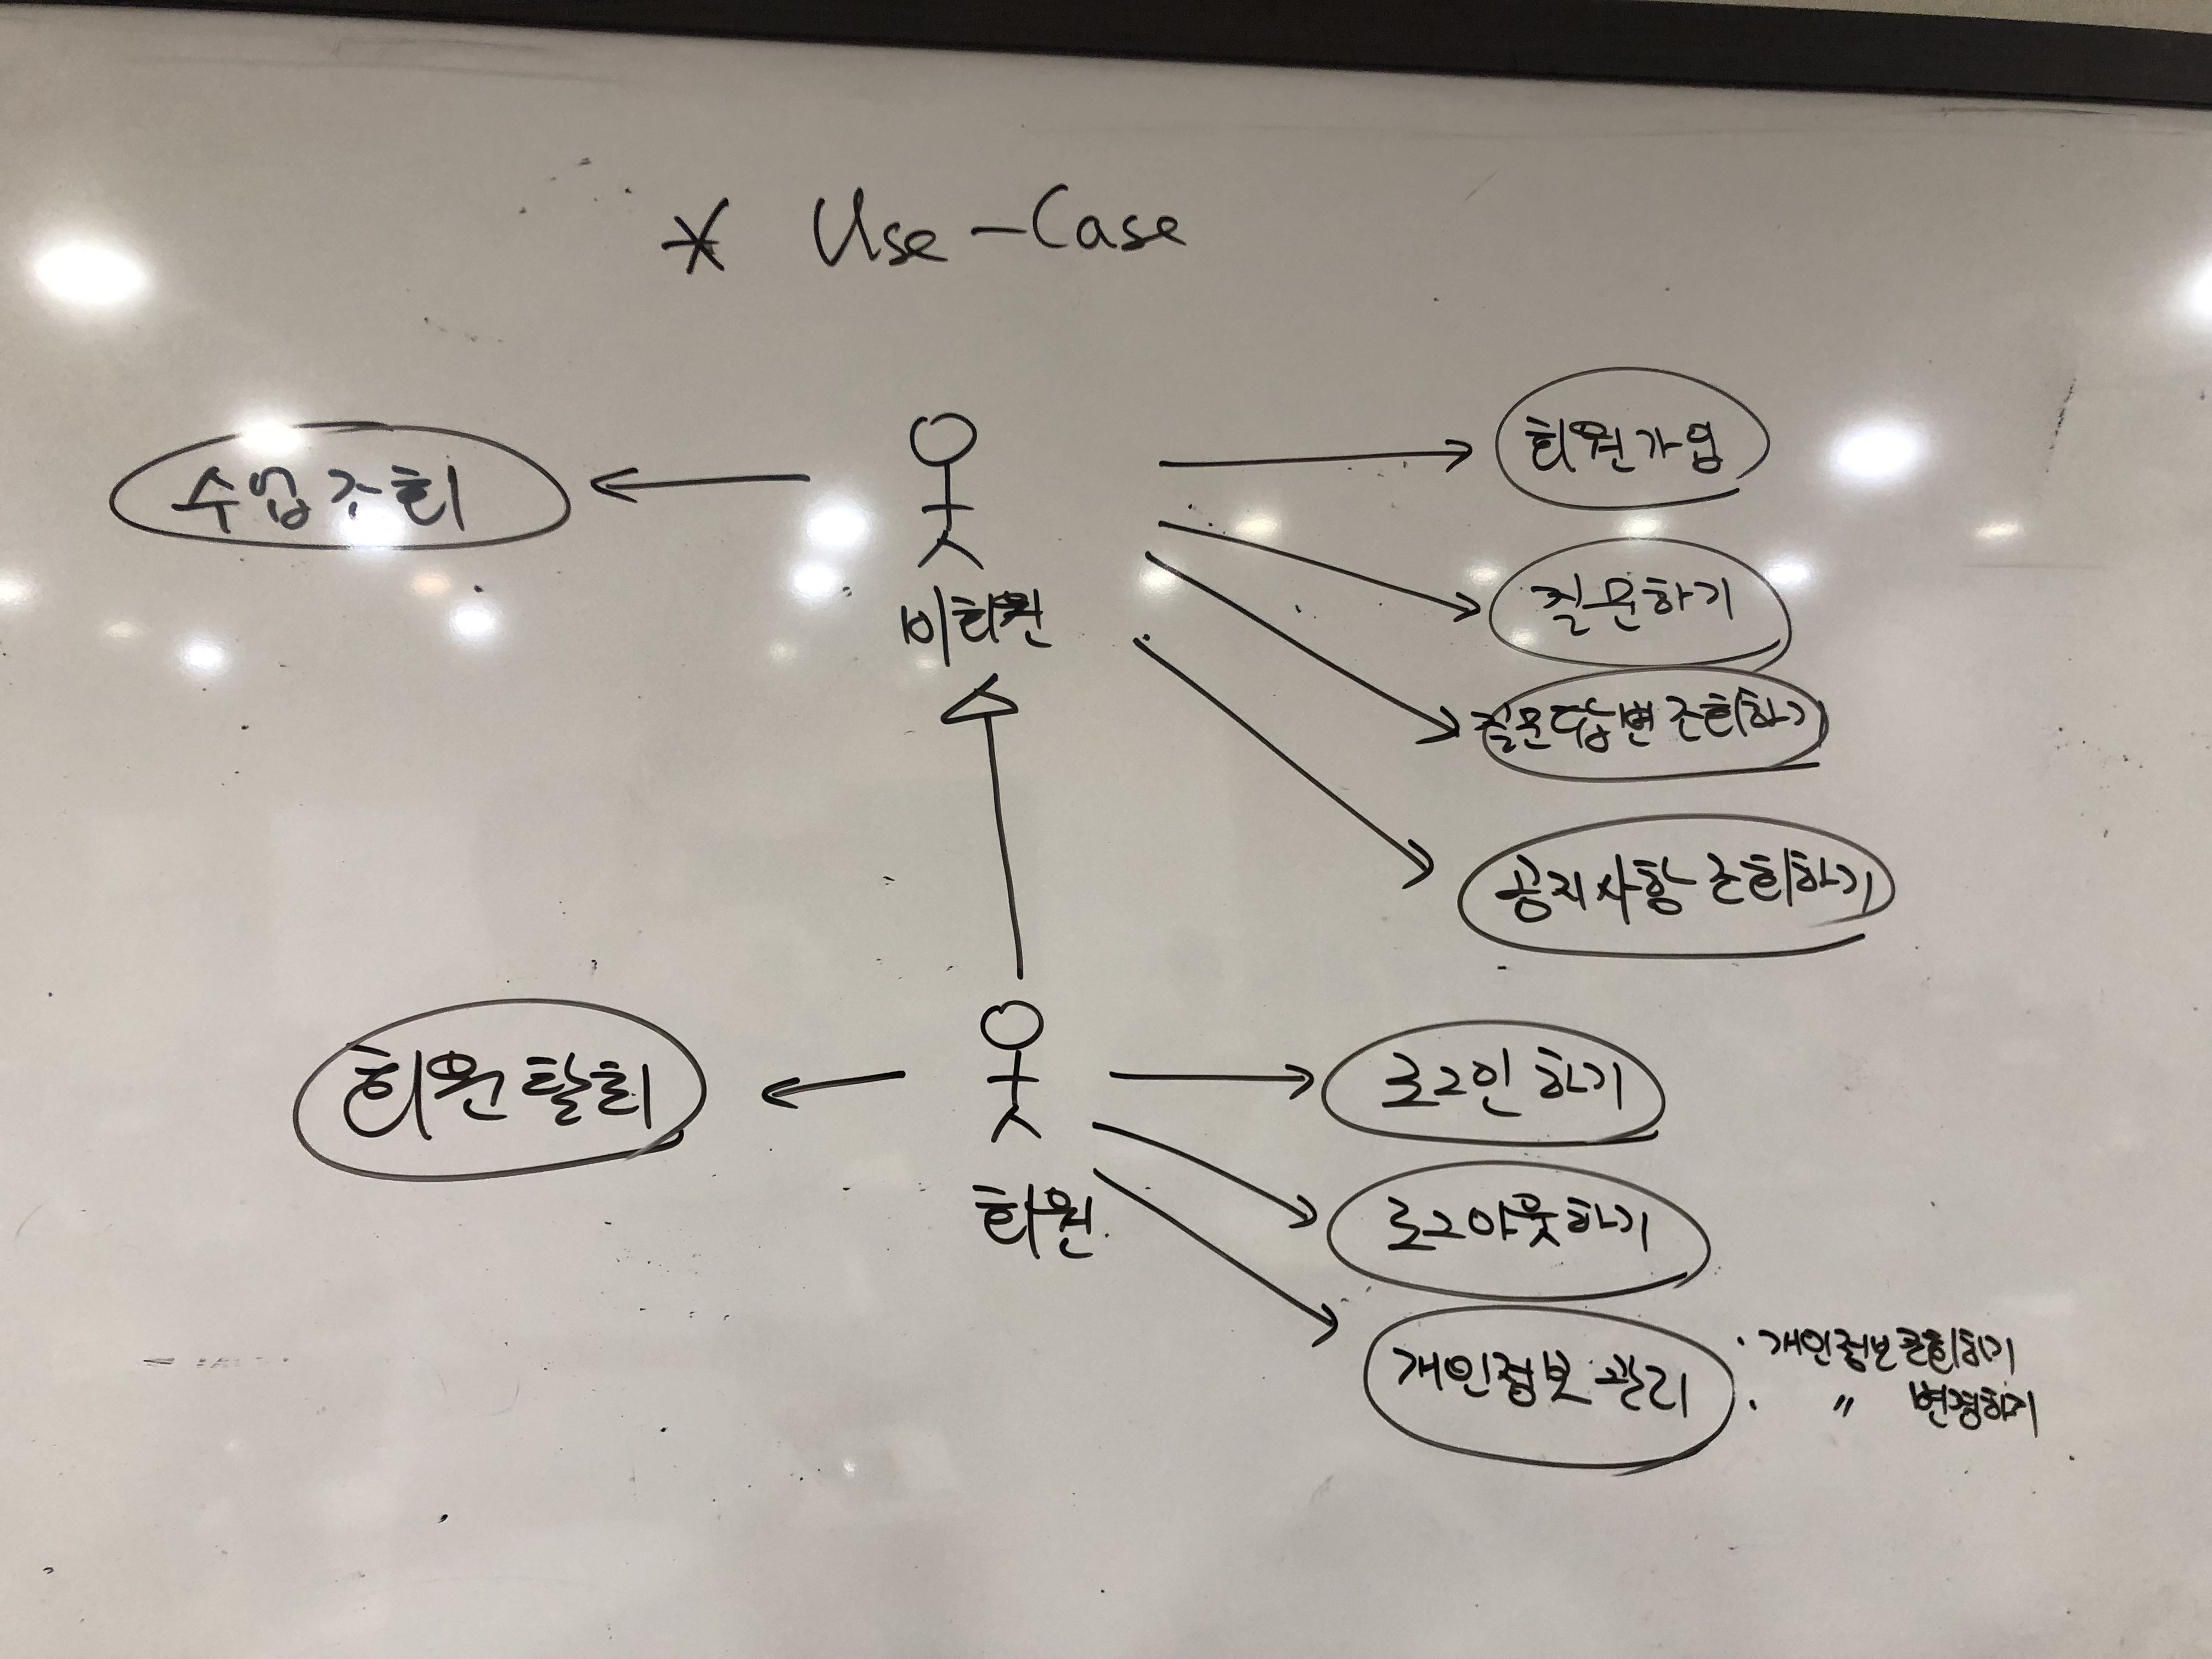 * Use-Case
수업조회
회원가입
질문하기
비회원
질문답변조회하기
공지사항조회하기
회원탈회
로그인하기
로그아웃하기
회원
개인정보관리
· 개인정보조회하기
· 〃 변경하기